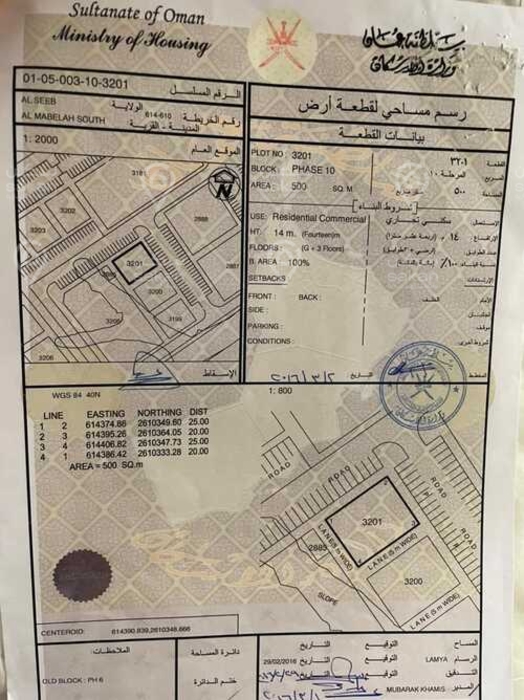 Sultanate of Oman
Ministry of Housing
سلطنة عمان
وزارة الإسكان
01-05-003-10-3201
الرقم المسلسل
AL SEEB
الولاية
614-610
رقم الخريطة
AL MABELAH SOUTH
المدينة - القرية
1: 2000
الموقع العام
رسم مساحي لقطعة أرض
بيانات القطعة
PLOT NO : 3201
٣٢٠١
القطعة
BLOCK: PHASE 10
المرحلة ١٠
المربع
AREA : 500 SQ. M
٥٠٠
المساحة
شروط البناء
USE: Residential Commercial
سكني تجاري
الاستعمال
HT: 14 m. (Fourteen)m
١٤ م. (أربعة عشر مترا)
الارتفاع
FLOORS: (G + 3 Floors)
عدد الطوابق
B. AREA : 100%
٪١٠٠
نسبة البناء
SETBACKS
الارتدادات
FRONT : BACK :
الأمام
الخلف
SIDE :
PARKING :
موقف
CONDITIONS
شروط أخرى
3181
3202
3203
2888
3201
2885
3200
2881
3206
3199
3206
N
الإسقاط
التاريخ
المخطط
WGS 84 40N
1: 800
LINE EASTING NORTHING DIST
1 2 614374.88 2610349.60 25.00
2 3 614395.26 2610364.05 20.00
3 4 614406.82 2610347.73 25.00
4 1 614386.42 2610333.28 20.00
AREA = 500 SQ.m
ROAD
ROAD
ROAD
ROAD
3201
LANE(5 m WIDE)
LANE (5 m WIDE)
2885
3200
SLOPE
LANE(5 m WIDE)
CENTEROID: 614390.839,2610348.666
الملاحظات
دائرة المساحة
التاريخ
التوقيع
المساح
29/02/2016
التاريخ
التوقيع
LAMYA
الرسام
OLD BLOCK : PH 6
ختم الدائرة
التدقيق
MUBARAK KHAMIS
المدير